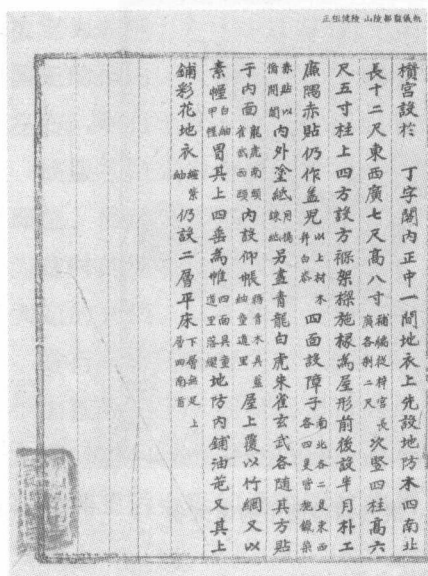 正祖健陵 山陵都監儀軌
欑宮設於 丁字閣內正中一間地衣上先設地防木四南北
長十二尺東西廣七尺高八寸 補編從梓宮長廣各剩二尺 次竪四柱高六
尺五寸柱上四方設方椺架樑施椽爲屋形前後設半月朴工
廉隅赤貼仍作盖兒 以上材木幷白漆 四面設障子 南北各二隻東西各四隻皆施鐵染
赤貼以備開閤 內外塗紙 用擣鍊紙 另畫靑龍白虎朱雀玄武各隨其方貼
于內面 龍虎南頭雀武西頭 內設仰帳 屋上覆以竹網又以
素幄 白紬甲幄 冒其上四垂爲帷 四面具 地防內鋪油芚又其上
鋪彩花地衣 紬 仍設二層平床 下層無足上層四南首